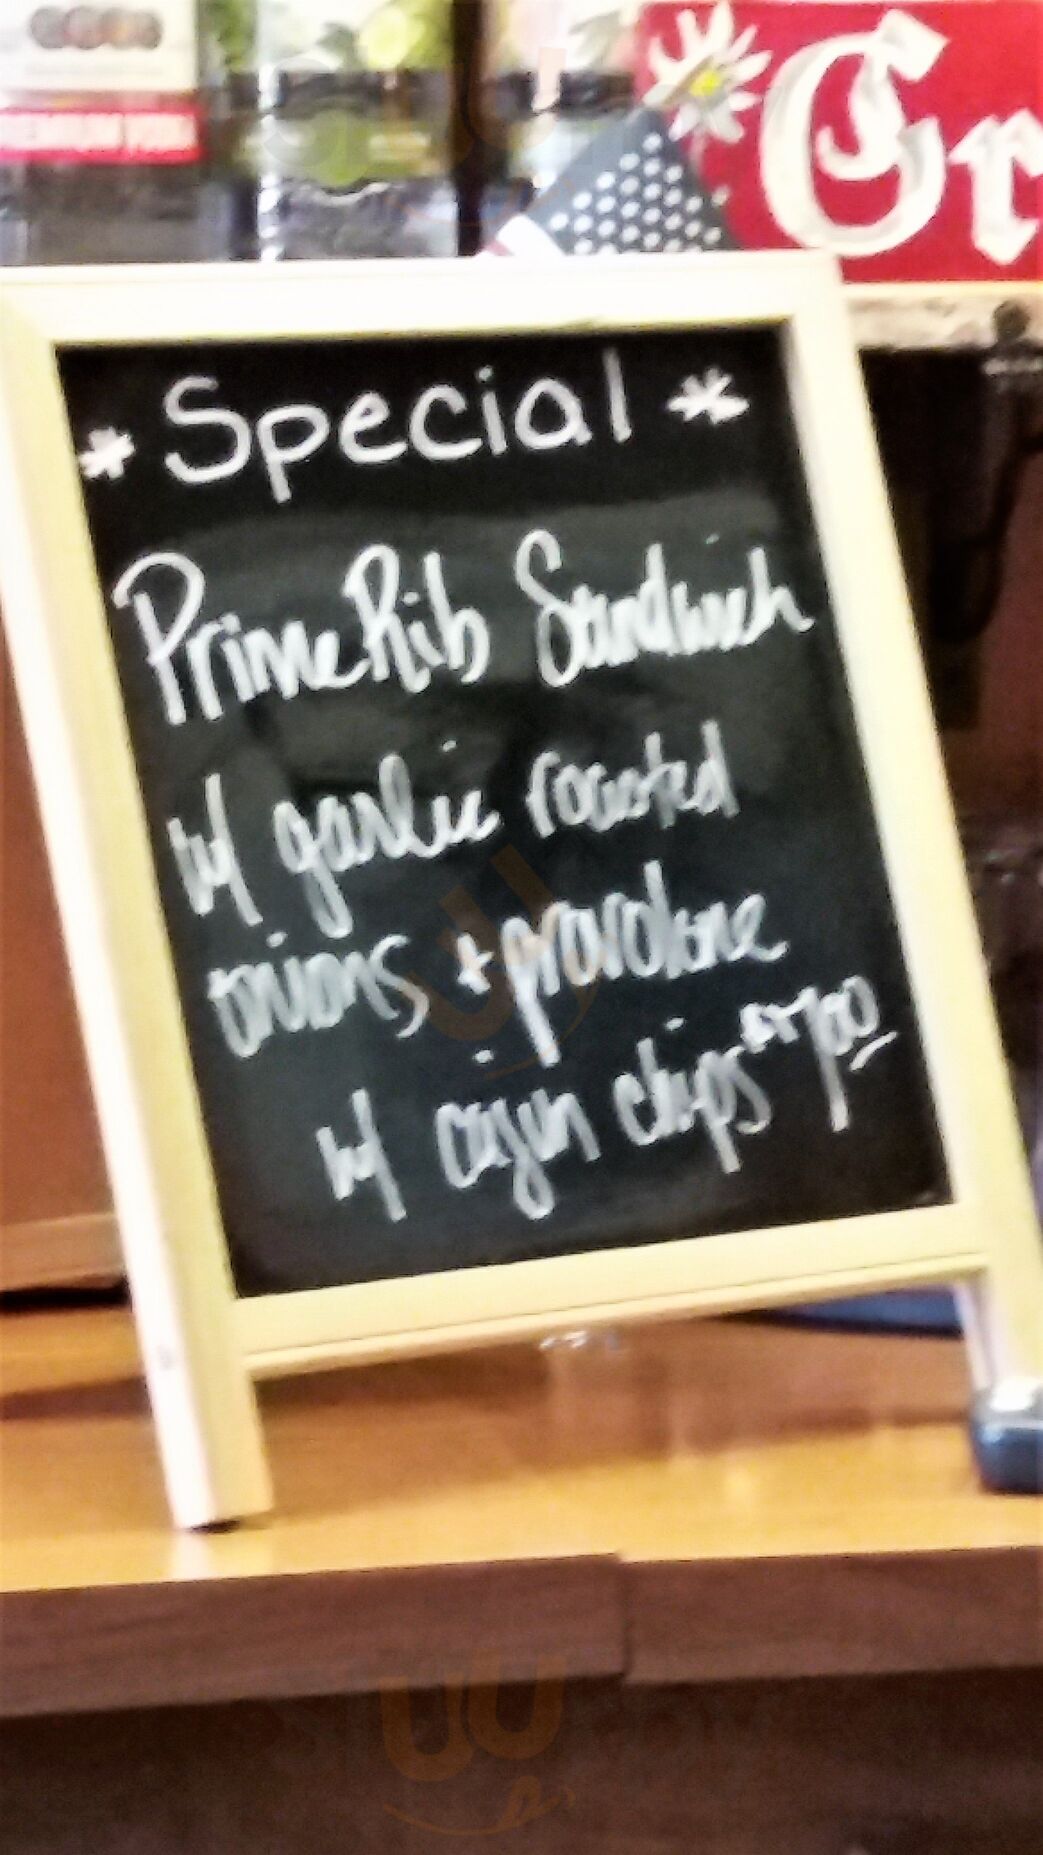 Gr
* Special *
Prime Rib Sandwich
w/ garlic roasted
onions + provolone
w/ cajun chips 7.00